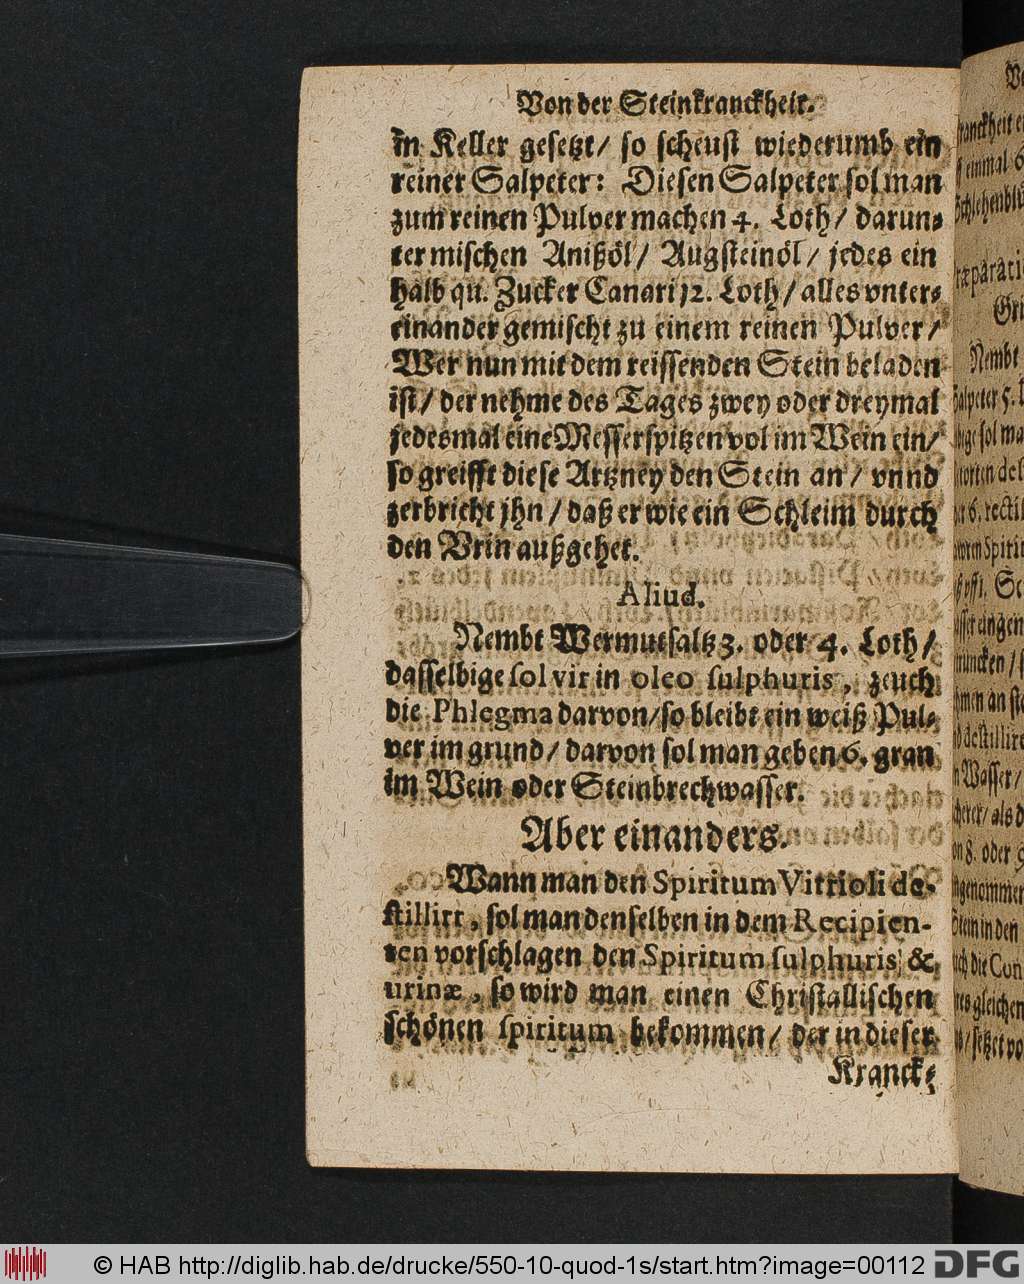 Von der Steinkranckheit.
in Keller gesetzt/ so scheust wiederumb ein
reiner Salpeter: Diesen Salpeter sol man
zum reinen Pulver machen 4. Loth/ darun-
ter mischen Anißöl/ Augsteinöl/ jedes ein
halb qu. Zucker Canari j2. Loth/ alles vnter-
einander gemischt zu einem reinen Pulver/
Wer nun mit dem reissenden Stein beladen
ist/ der nehme des Tages zwey oder dreymal
jedesmal eine Messerspitzen vol im Wein ein/
so greifft diese Artzney den Stein an/ vnnd
zerbricht jhn/ daß er wie ein Schleim durch
den Vrin außgehet.
Aliud.
Nembt Wermutsaltz 3. oder 4. Loth/
dasselbige solvir in oleo sulphuris, zeuch
die Phlegma darvon/ so bleibt ein weiß Pul-
ver im grund/ darvon sol man geben 6. gran
im Wein oder Steinbrechwasser.
Aber ein anders.
Wann man den Spiritum Vitrioli de-
stillirt, sol man denselben in dem Recipien-
ten vorschlagen den Spiritum sulphuris, &
urinæ, so wird man einen Christallischen
schönen spiritum bekommen/ der in dieser
Kranck-
V
ranckheit
einmal 6
Schlehenblü
ræparati
Nembt
Salpeter 5.
sol ma
6. rectif
Spirit
eingen
truncken/
men an
destillire
Wasser/
als d
8. oder 9
ngenommen
Stein in den
die Con
gleichen
setzet vo
© HAB http://diglib.hab.de/drucke/550-10-quod-1s/start.htm?image=00112 DFG